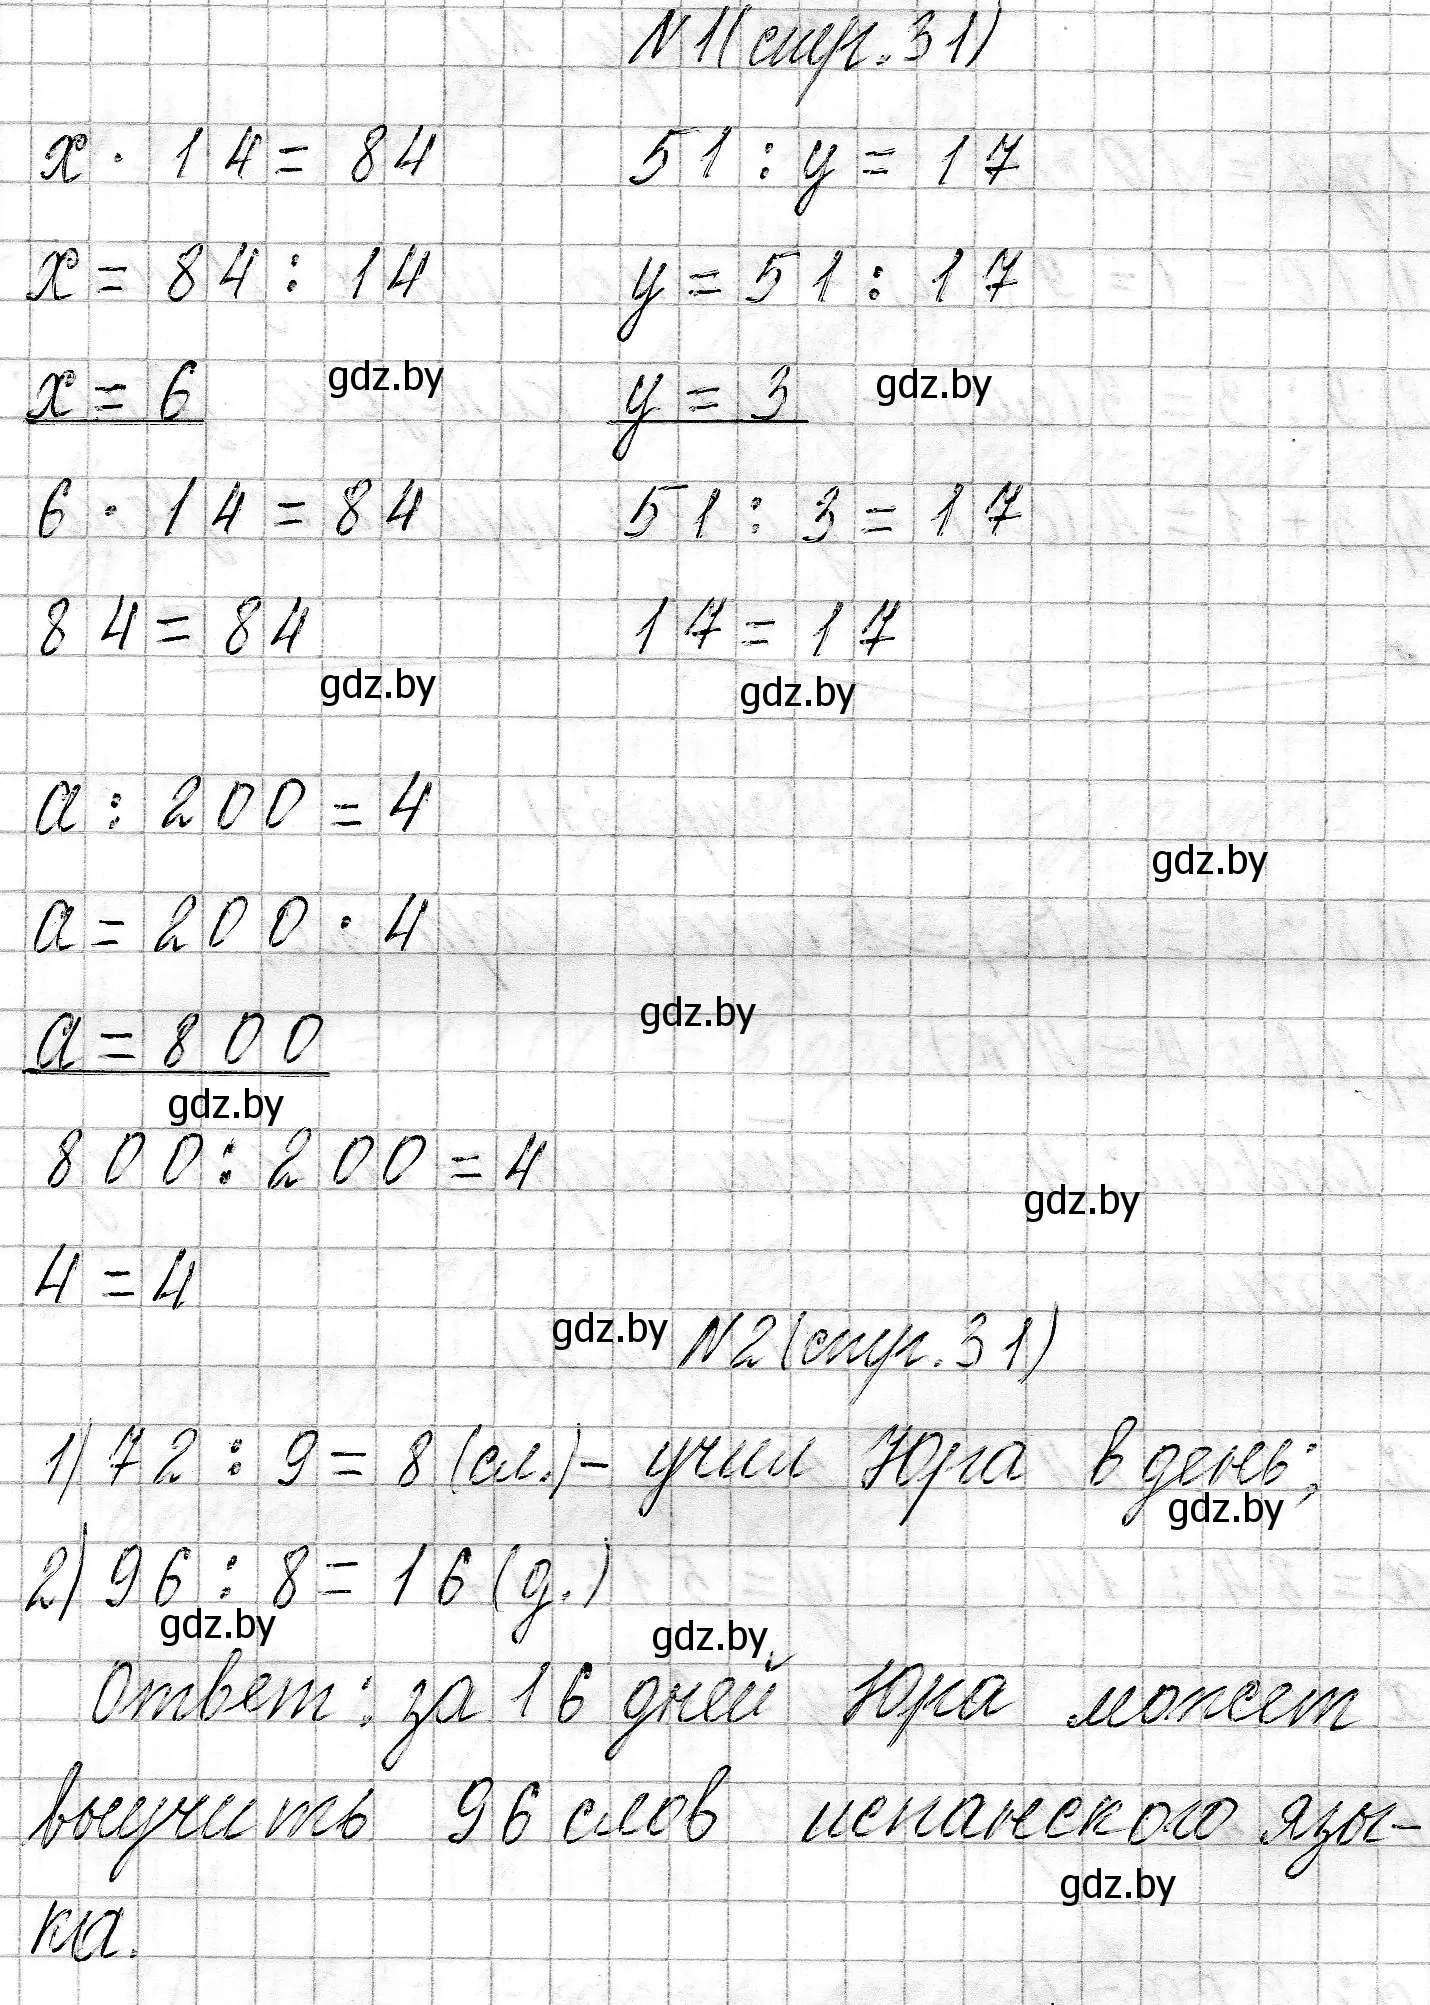 N1(стр.31)
x · 14 = 84 51 : y = 17
x = 84 : 14 y = 51 : 17
x = 6 gdz.by y = 3 gdz.by
6 · 14 = 84 51 : 3 = 17
84 = 84 17 = 17
gdz.by gdz.by
a : 200 = 4
gdz.by
a = 200 · 4
a = 800 gdz.by
gdz.by
800 : 200 = 4
gdz.by
4 = 4
gdz.by N2(стр.31)
1) 72 : 9 = 8 (сл.) – учил Юра в день;
gdz.by
2) 96 : 8 = 16 (д.)
gdz.by gdz.by
Ответ: за 16 дней Юра может
выучить 96 слов испанского язы-
gdz.by
ка.